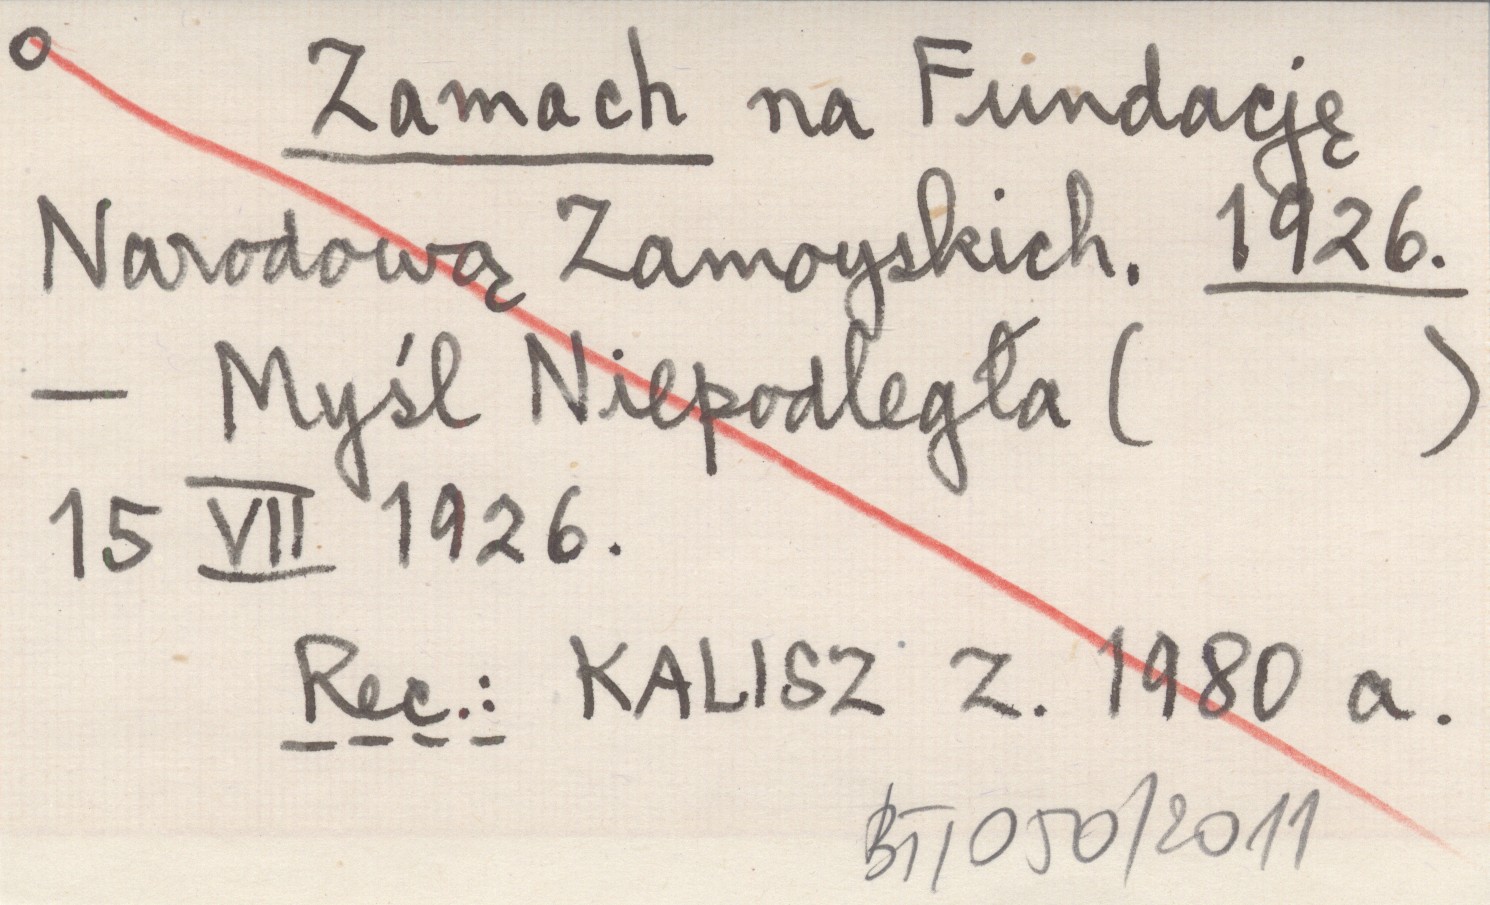 Zamach na Fundację
Narodową Zamoyskich. 1926.
— Myśl Niepodległa ( )
15 VII 1926.
Rec.: KALISZ Z. 1980 a.
BT/050/2011